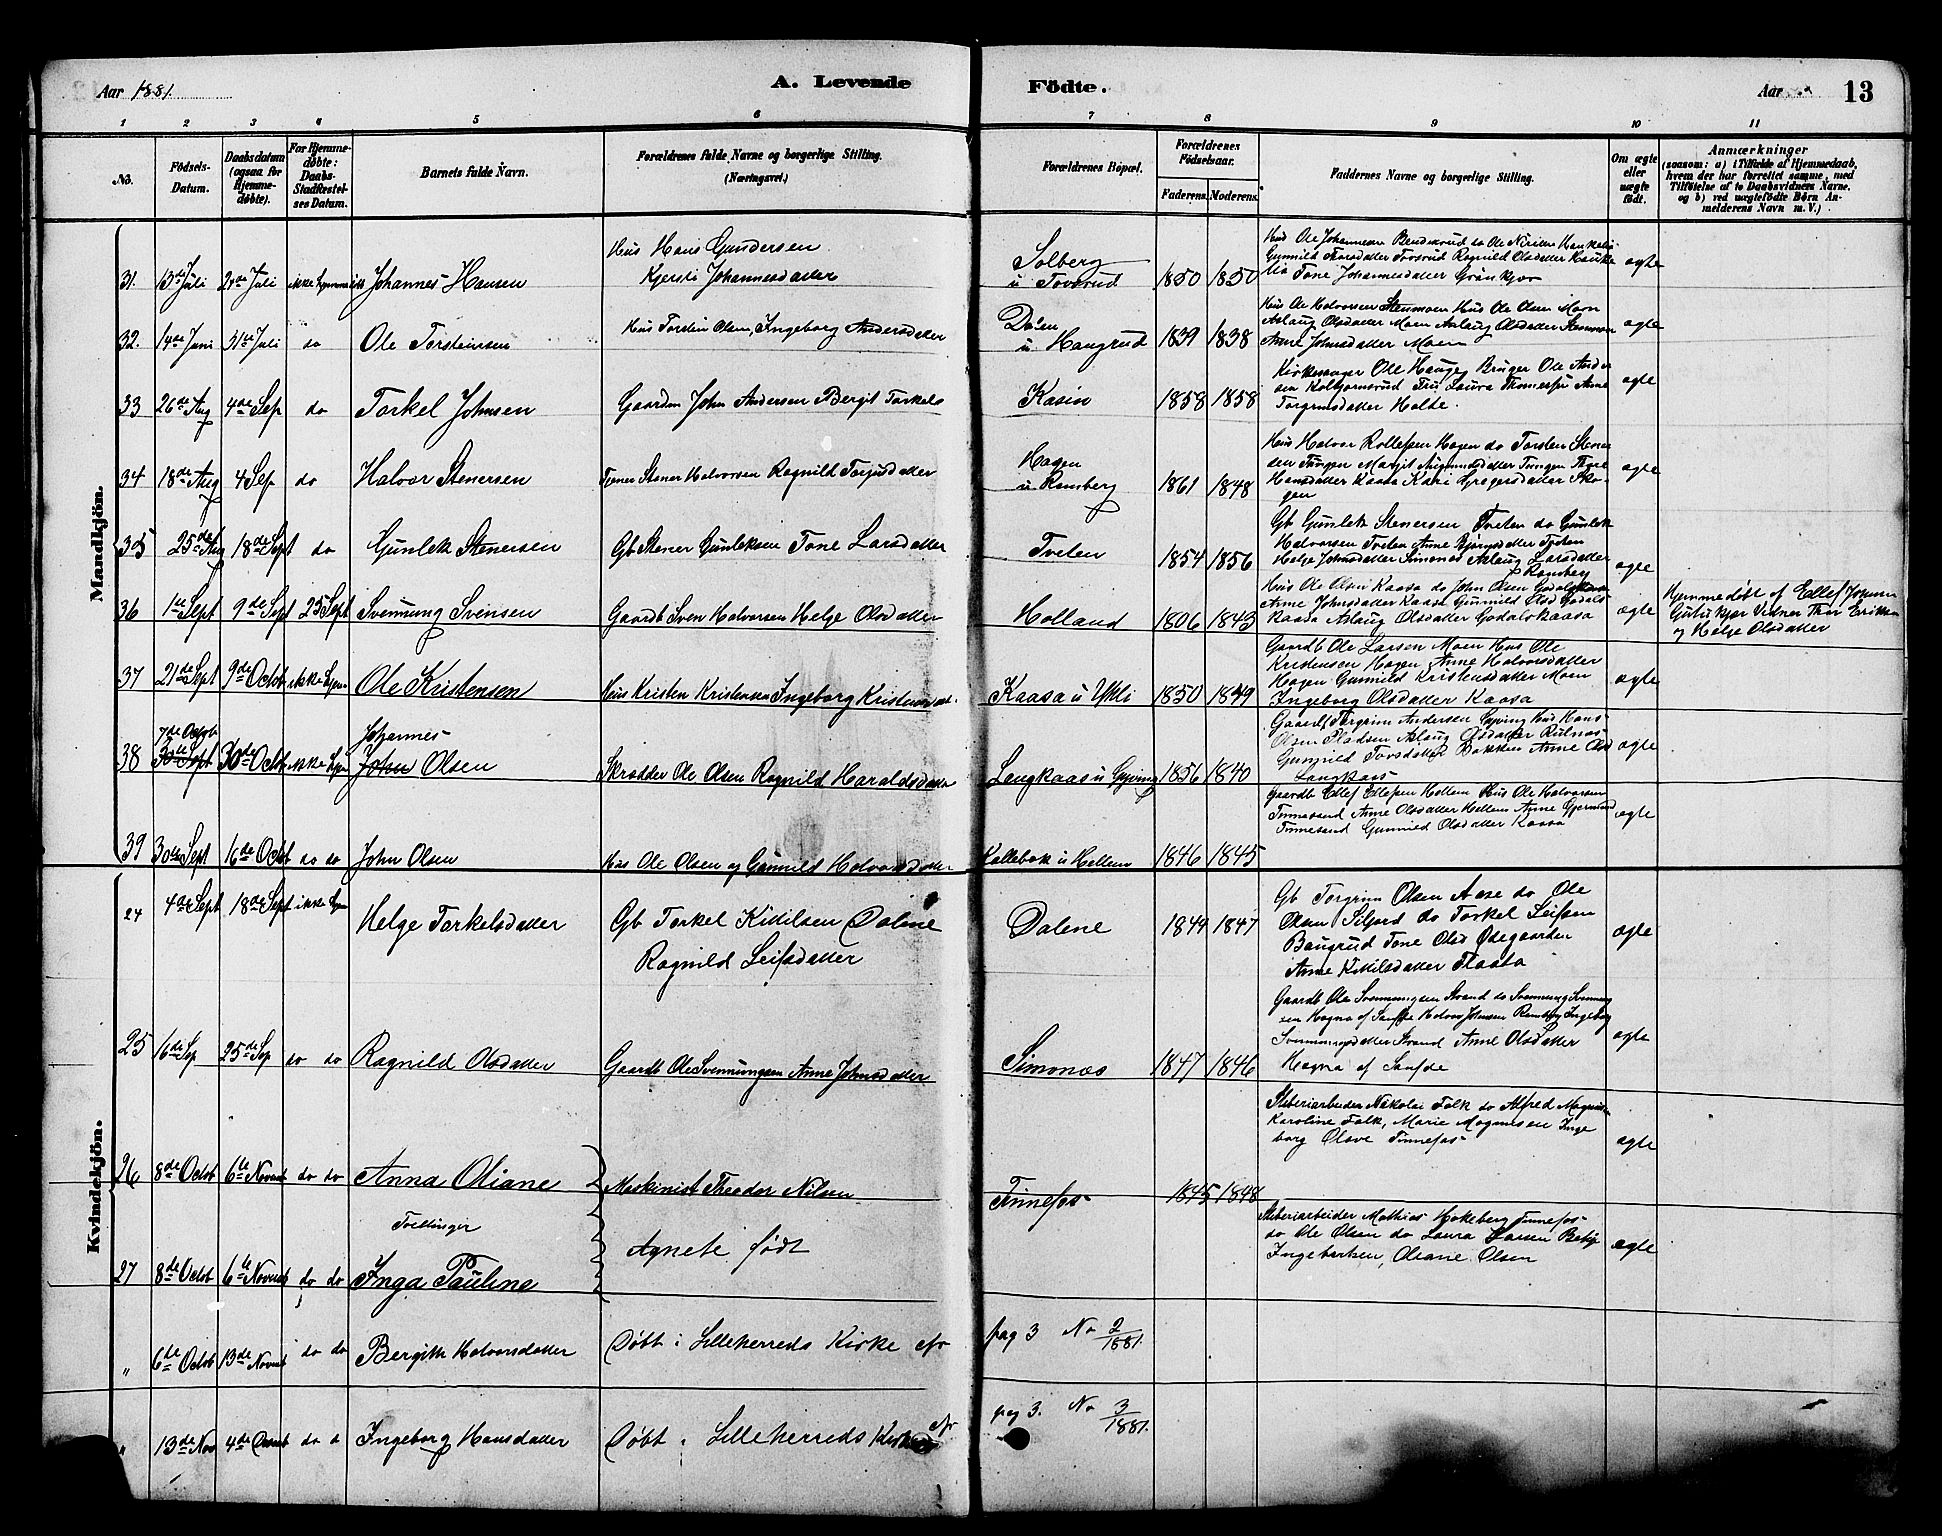 Aar 1881.
A. Levende
Födte.
Aar
13
1
2
3
4
5
6
7
8
9
10
11
No.
Födsels-Datum.
Daabsdatum (ogsaa for Hjemme-döbte).
For Hjemme-döbte: Daabs-Stadfæstel-ses Datum.
Barnets fulde Navn.
Forældrenes fulde Navne og borgerlige Stilling. (Næringsvei.)
Forældrenes Bopæl.
Forældrenes Födselsaar.
Faderens.
Moderens.
Faddernes Navne og borgerlige Stilling.
Om ægte eller uægte födt.
Anmærkninger
(saasom: a) i Tilfælde af Hjemmedaab, hvem der har forrettet samme, med Tilföielse af to Daabsvidners Navne, og b) ved uægtefödte Börn Anmelderens Navn m. V.)
Mandkjön.
31. 13de Juli Juli Johannes Hansen
Hus Hans Gundersen
Kjersti Johannesdatter
Solberg
u Tovsrud 1850 1850
Tone Johannesdatter
ægte
32. 14de Juni 31te Juli do Ole Torsteinsen
Hus Torstin Olsen, Ingeborg Andersdatter
u Haugrud 1839 1838
Hus Ole Halvorsen Stenmoen Hus Ole Olsen Moen
Aslaug Olsdatter Moen Aslaug Olsdatter
Anne Johnsdatter Moen
ægte
33 26de Aug 4de Sep do Torkel Johnsen
Gaardm John Andersen Bergit Torkels
Kasin 1858 1858
Kirkesanger Ole Hauge Bruger Ole Ander
sen Kolbjørnsrud Fru Laura Anne
Torgrimsdatter Holte.
ægte
34 18de Aug 4 Sep do Halvor Stenersen
Tjener Stener Halvorsen Ragnild Torjusdatter
Hagen
u Ramberg 1861 1848
Hus Halvor Rollefsen Hagen do Torsten Stener
sen Tungen Margit Tungen
Hansdatter Kaasa Kari Gregersdatter Sko-
gen
ægte
35 25de Aug 18de Sept do Gunlek Stenersen
Gb Stener Gunleksen Tone Larsdatter
Tveten 1854 1856
Gb Gunlek Stenersen Tveten do Gunlek
Halvorsen Tveten Anne Bjørnsdatter Tveten
Helje Johnsdatter Simonæs Aslaug Larsdatter
Ramberg
ægte
36 1ste Sept 9de Sept 25 Sept Svennung Svensen
Gaardb Sven Halvorsen Helge Olsdatter
Holland 1806 1843
Hus Ole Olsen Kaasa do John Olsen
Anne Johnsdatter Kaasa Gunnild
Kaasa Aslaug Olsdatter Godalskaasa
ægte
Hjemmedøbt af Ellef
Vidner Thor Eriksen
og Helje Olsdatter
37 21de Sept 9de Octob ikke hjem Ole Kristensen
Hus Kristen Kristensen Ingeborg
Kaasa u Ytli 1850 1849
Gaardb Ole Larsen Moen Hus Ole
Kristensen Hagen Anne Halvorsdatter
Hagen Gunnild Kristensdatter Moen
Ingeborg Olsdatter Kaasa
ægte
7de Octob
Johannes
38 30te Sept 30de Octob ikke hjem John Olsen
Skrædder Ole Olsen Ragnild Haraldsdatter
Lengkaas u Gyving 1856 1840
Gaardb Torgrim Andersen Gyving Hus Hans
Olsen Pladsen Aslaug Olsdatter
Gunnild Torsdatter Bakken Anne Olsd
Langkaas
ægte
39 30te Sept 16de Octob do do John Olsen
Hus Ole Olsen og Gunnild Halvorsdatter
Kallebak u Hellem 1846 1845
Gaardb Ellef Ellefsen Hellem Hus Ole Halvorsen
Tinnesand Anne Olsdatter Hellem Anne
Tinnesand Gunnild Olsdatter Kaasa
ægte
Kvindekjön.
24 4de Sept 18de Sept ikke hjem Helge Torkelsdatter
Gb Torkel Kittilsen Dalene
Ragnild Leifsdatter
Dalene 1844 1847
Gb Torgrim Olsen Aase do Ole
Olsen Siljord do Torkel Leifsen
Baugrud Tone Olsd Ødegaarden
Anne Kittilsdatter Flaata
ægte
25 16de Sep 25de Sep do do Ragnild Olsdatter
Gaardb Ole Svennungsen Anne Johnsdatter
Simonæs 1847 1846
Gaardb Ole Svennungsen Strand do Svennung Svennung
sen Hagna af Saufde Halvor Johnsen Ramberg Ingeborg
Svennungsdatter Strand Anne Olsdatter
Hagna af Saufde
ægte
26 8de Octob 6te Novemb do do Anna Oliane
Maskinist Theodor Nilsen
Tinnefos 1845 1848
Sliberiarbeider Nikolai Falk do Alfred
Karoline Falk, Marie Magnussen Inge
borg Olave Tinnefos
ægte
Tvillinger
Agnete født
27 8de Octob 6te Novemb do do Inga Pauline
Sliberiarbeider Mathias Hakeberg Tinnefos
do Ole Olsen do Laura Larsen
Oliane Olsen
ægte
" 6de Octob 13de Novemb do do Bergith Halvorsdatter
Døbt i Lilleherreds Kirke cfr
pag 3 No 2/1881.
" 13de Nov 4de do Ingeborg Hansdatter
Døbt i Lilleherreds Kirke cfr
pag 3. No 3/1881.